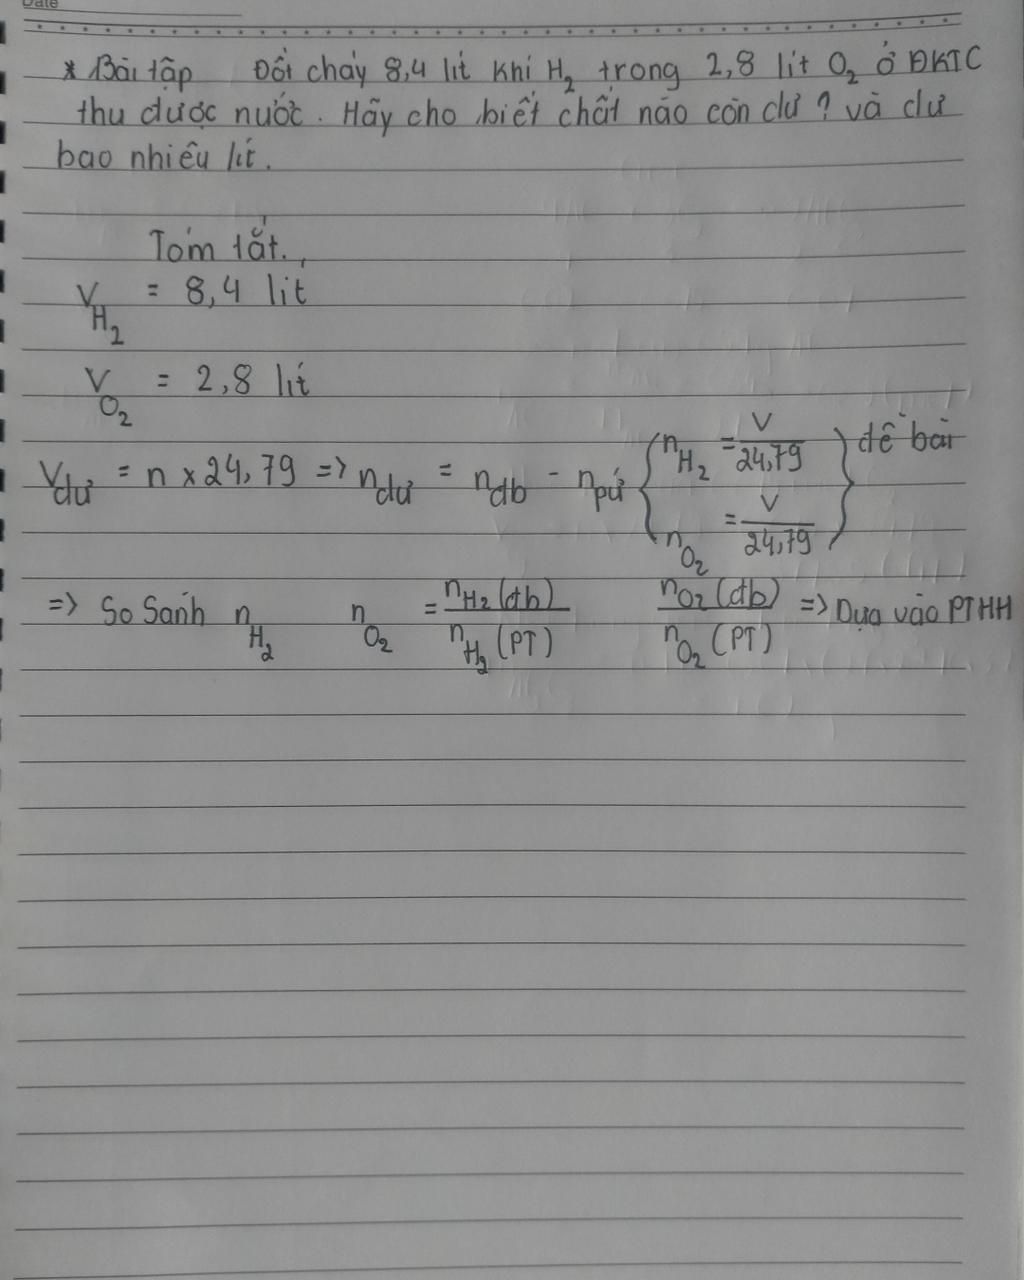 Date
* Bài tập Đốt cháy 8,4 lít khí H₂ trong 2,8 lít O₂ ở ĐKTC
thu được nước. Hãy cho biết chất nào còn dư? và dư
bao nhiêu lít.
Tóm tắt.
V_H₂ = 8,4 lít
V_O₂ = 2,8 lít
V_dư = n x 24,79 => n_dư = n_đb - n_pứ { n_H₂ = V/24,79 n_O₂ = V/24,79 } đề bài
=> So Sánh n_H₂ n_O₂ = n_H₂(đb)/n_H₂(PT) n_O₂(đb)/n_O₂(PT) => Dựa vào PTHH